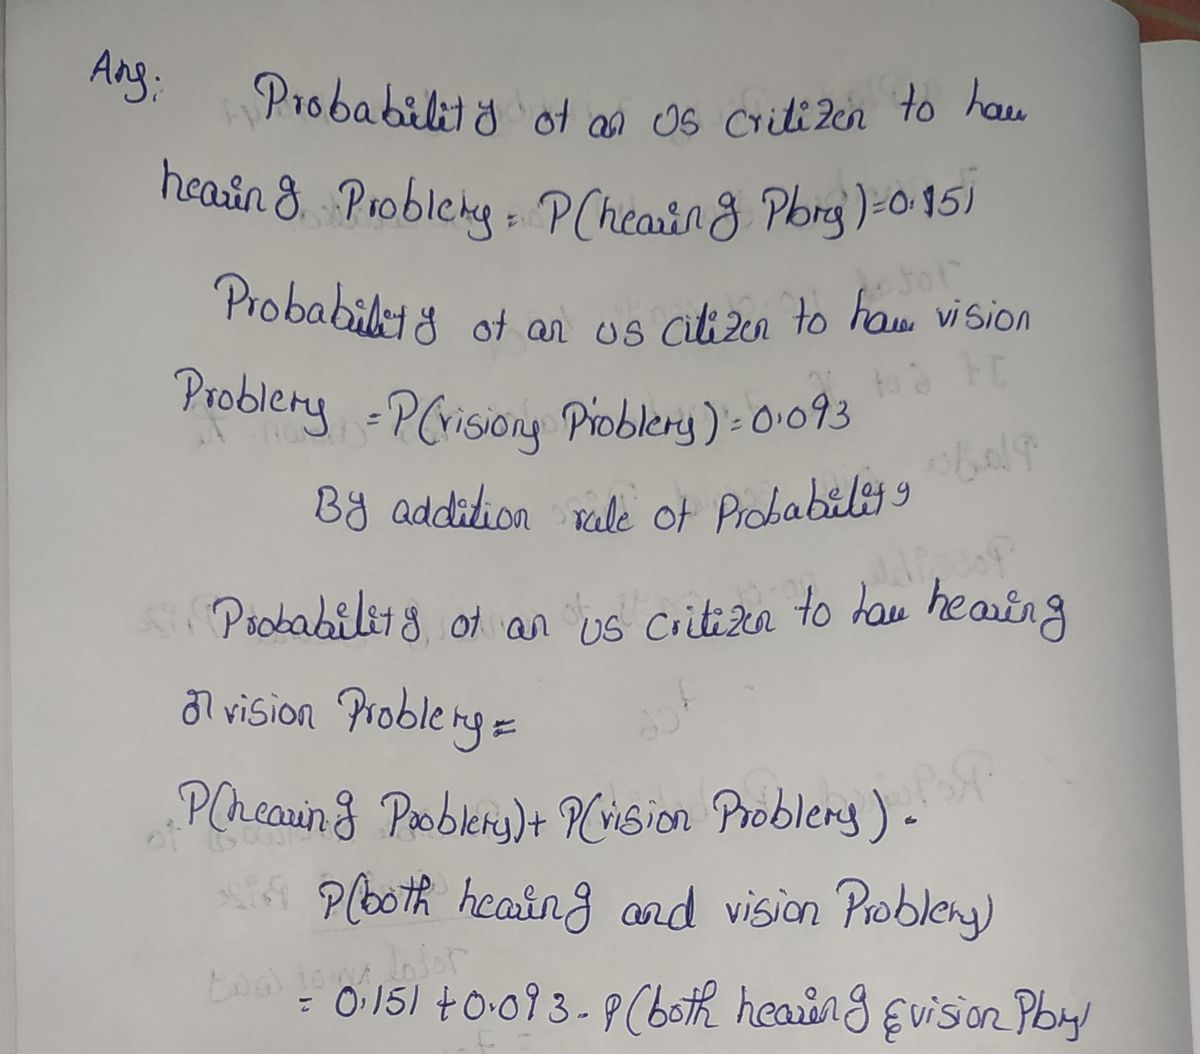 Ans:
Probability of an US critizen to have
hearing Problem = P(hearing Pbm) = 0.151
Probability of an US citizen to have vision
Problem = P(vision Problem) = 0.093
By addition rule of Probability
Probability of an US critizen to have hearing
or vision Problem =
P(hearing Problem) + P(vision Problem) -
P(both hearing and vision Problem)
= 0.151 + 0.093 - P(both hearing & vision Pbm)